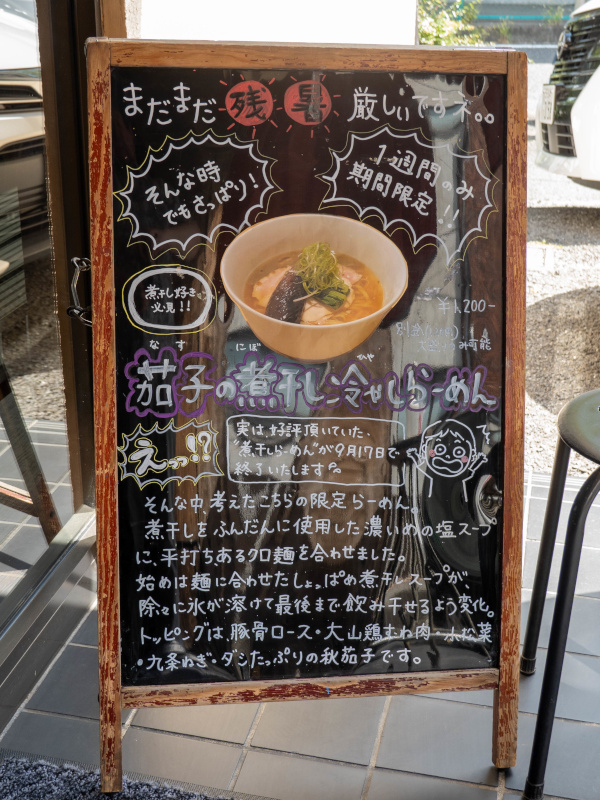 まだまだ残暑厳しいですネ。。
そんな時
でもさっぱり!
1週間のみ
期間限定!!
煮干し好き
必見!!
¥1200-
み可能
なす
にぼ
ひや
茄子の煮干し冷やしらーめん
えっっ!?
実は、好評頂いていた、
"煮干しらーめん"が9月17日で
終了いたします
そんな中、考えたこちらの限定らーめん。
煮干しをふんだんに使用した濃いめの塩スープ
に、平打ちあるタロ麺を合わせました。
始めは麺に合わせたしょっぱめ煮干しスープが、
除々に氷が溶けて最後まで飲み干せるよう変化。
トッピングは、豚肩ロース・大山鶏むね肉・小松菜
・九条ねぎ・ダシたっぷりの秋茄子です。